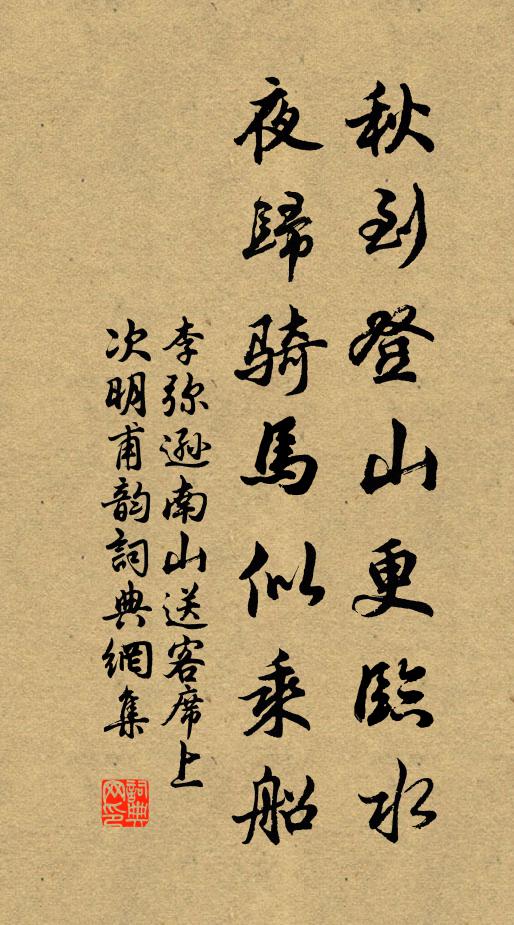 秋到登山更臨水
夜歸騎馬似乘船
李弥遜南山送客席上
次明甫韵詞典網集
詞典
网印